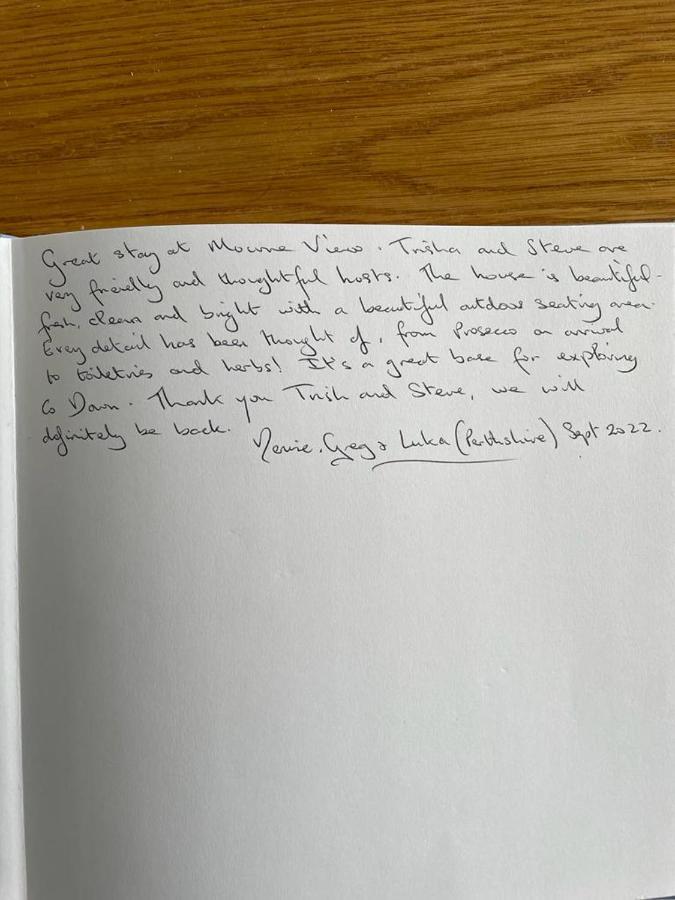 Great stay at Mourne View. Trisha and Steve are
very friendly and thoughtful hosts. The house is beautiful -
fresh, clean and bright with a beautiful outdoor seating area.
Every detail has been thought of, from Prosecco on arrival
to toiletries and herbs! It's a great base for exploring
Co Down. Thank you Trish and Steve, we will
definitely be back.
Greg & Luka (Perthshire) Sept 2022.